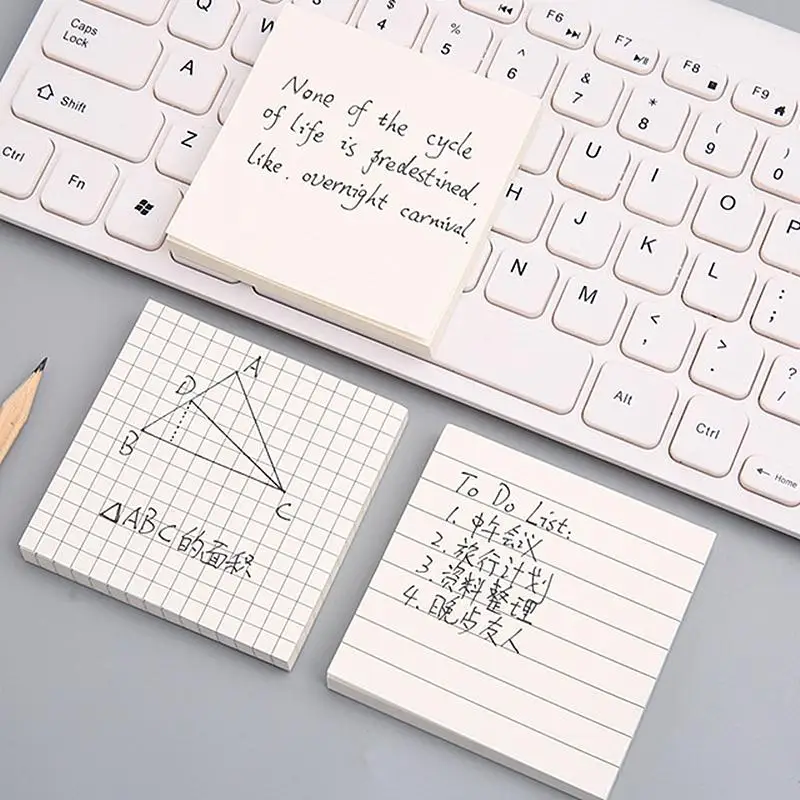 None of the cycle
of life is predestined.
like. overnight carnival.
A
D
B
C
△ABC的面积
To Do List:
1. 中午会议
2. 旅行计划
3. 资料整理
4. 晚与友人
Caps Lock
Q
$ 4
% 5
^ 6
& 7
* 8
( 9
) 0
F6
F7
F8
F9
A
Shift
Z
Ctrl
Fn
U
I
O
P
H
J
K
L
: ;
N
M
< ,
> .
? /
Alt
Ctrl
← Home